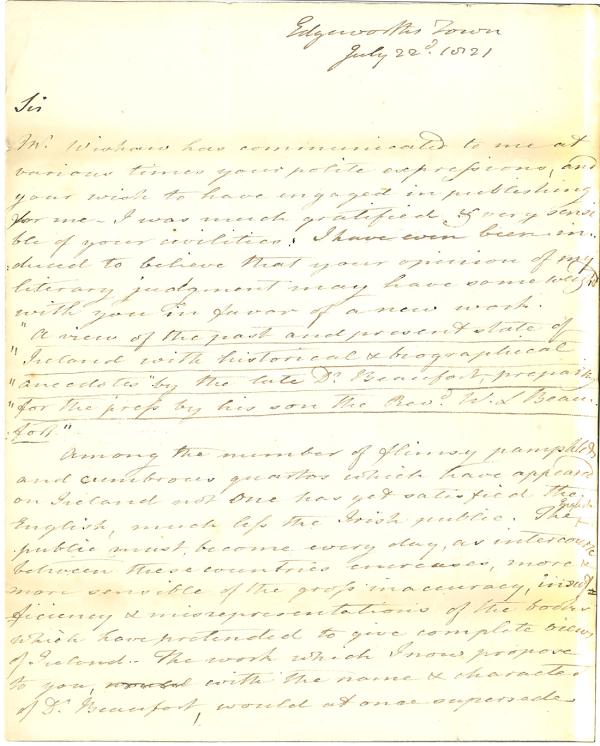 Edgeworths Town
July 22d. 1821
Sir
Mr. Wishaw has communicated to me at
various times your polite expressions, and
your wish to have engaged in publishing
for me - I was much gratified & very sensi
ble of your civilities; I have even been in-
:duced to believe that your opinion of my
literary judgment may have some weight
with you in favor of a new work.
"A view of the past and present state of
"Ireland with historical & biographical
"anecdotes" by the late Dr. Beaufort, preparing
"for the press by his son the Revd. W. L Beau-
fort"
Among the number of flimsy pamphlets
and cumbrous quartos which have appeared
on Ireland not one has yet satisfied the
English, much less the Irish public. The English
public must become every day, as intercourse
between these countries encreases, more &
more sensible of the gross inaccuracy, insuf=
ficiency & misrepresentations of the books
which have pretended to give complete views
of Ireland. The work which I now propose
to you, with the name & character
of Dr. Beaufort, would at once supersede